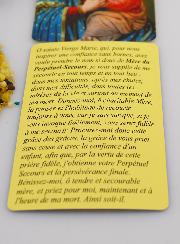 O sainte Vierge Marie, qui, pour nous
inspirer une confiance sans bornes, avez
voulu prendre le nom si doux de Mère du
Perpétuel-Secours, je vous supplie de me
secourir en tout temps et en tout lieu,
dans mes tentations, après mes chutes,
dans mes difficultés, dans toutes les
misères de la vie et surtout au moment de
ma mort. Donnez-moi, ô charitable Mère,
la pensée et l'habitude de recourir
toujours à vous, car je sais que, si je
vous invoque fidèlement, vous serez fidèle
à me secourir. Procurez-moi donc cette
grâce des grâces, la grâce de vous prier
sans cesse et avec la confiance d'un
enfant, afin que, par la vertu de cette
prière fidèle, j'obtienne votre Perpétuel
Secours et la persévérance finale.
Bénissez-moi, ô tendre et secourable
mère, et priez pour moi, maintenant et à
l'heure de ma mort. Ainsi soit-il.